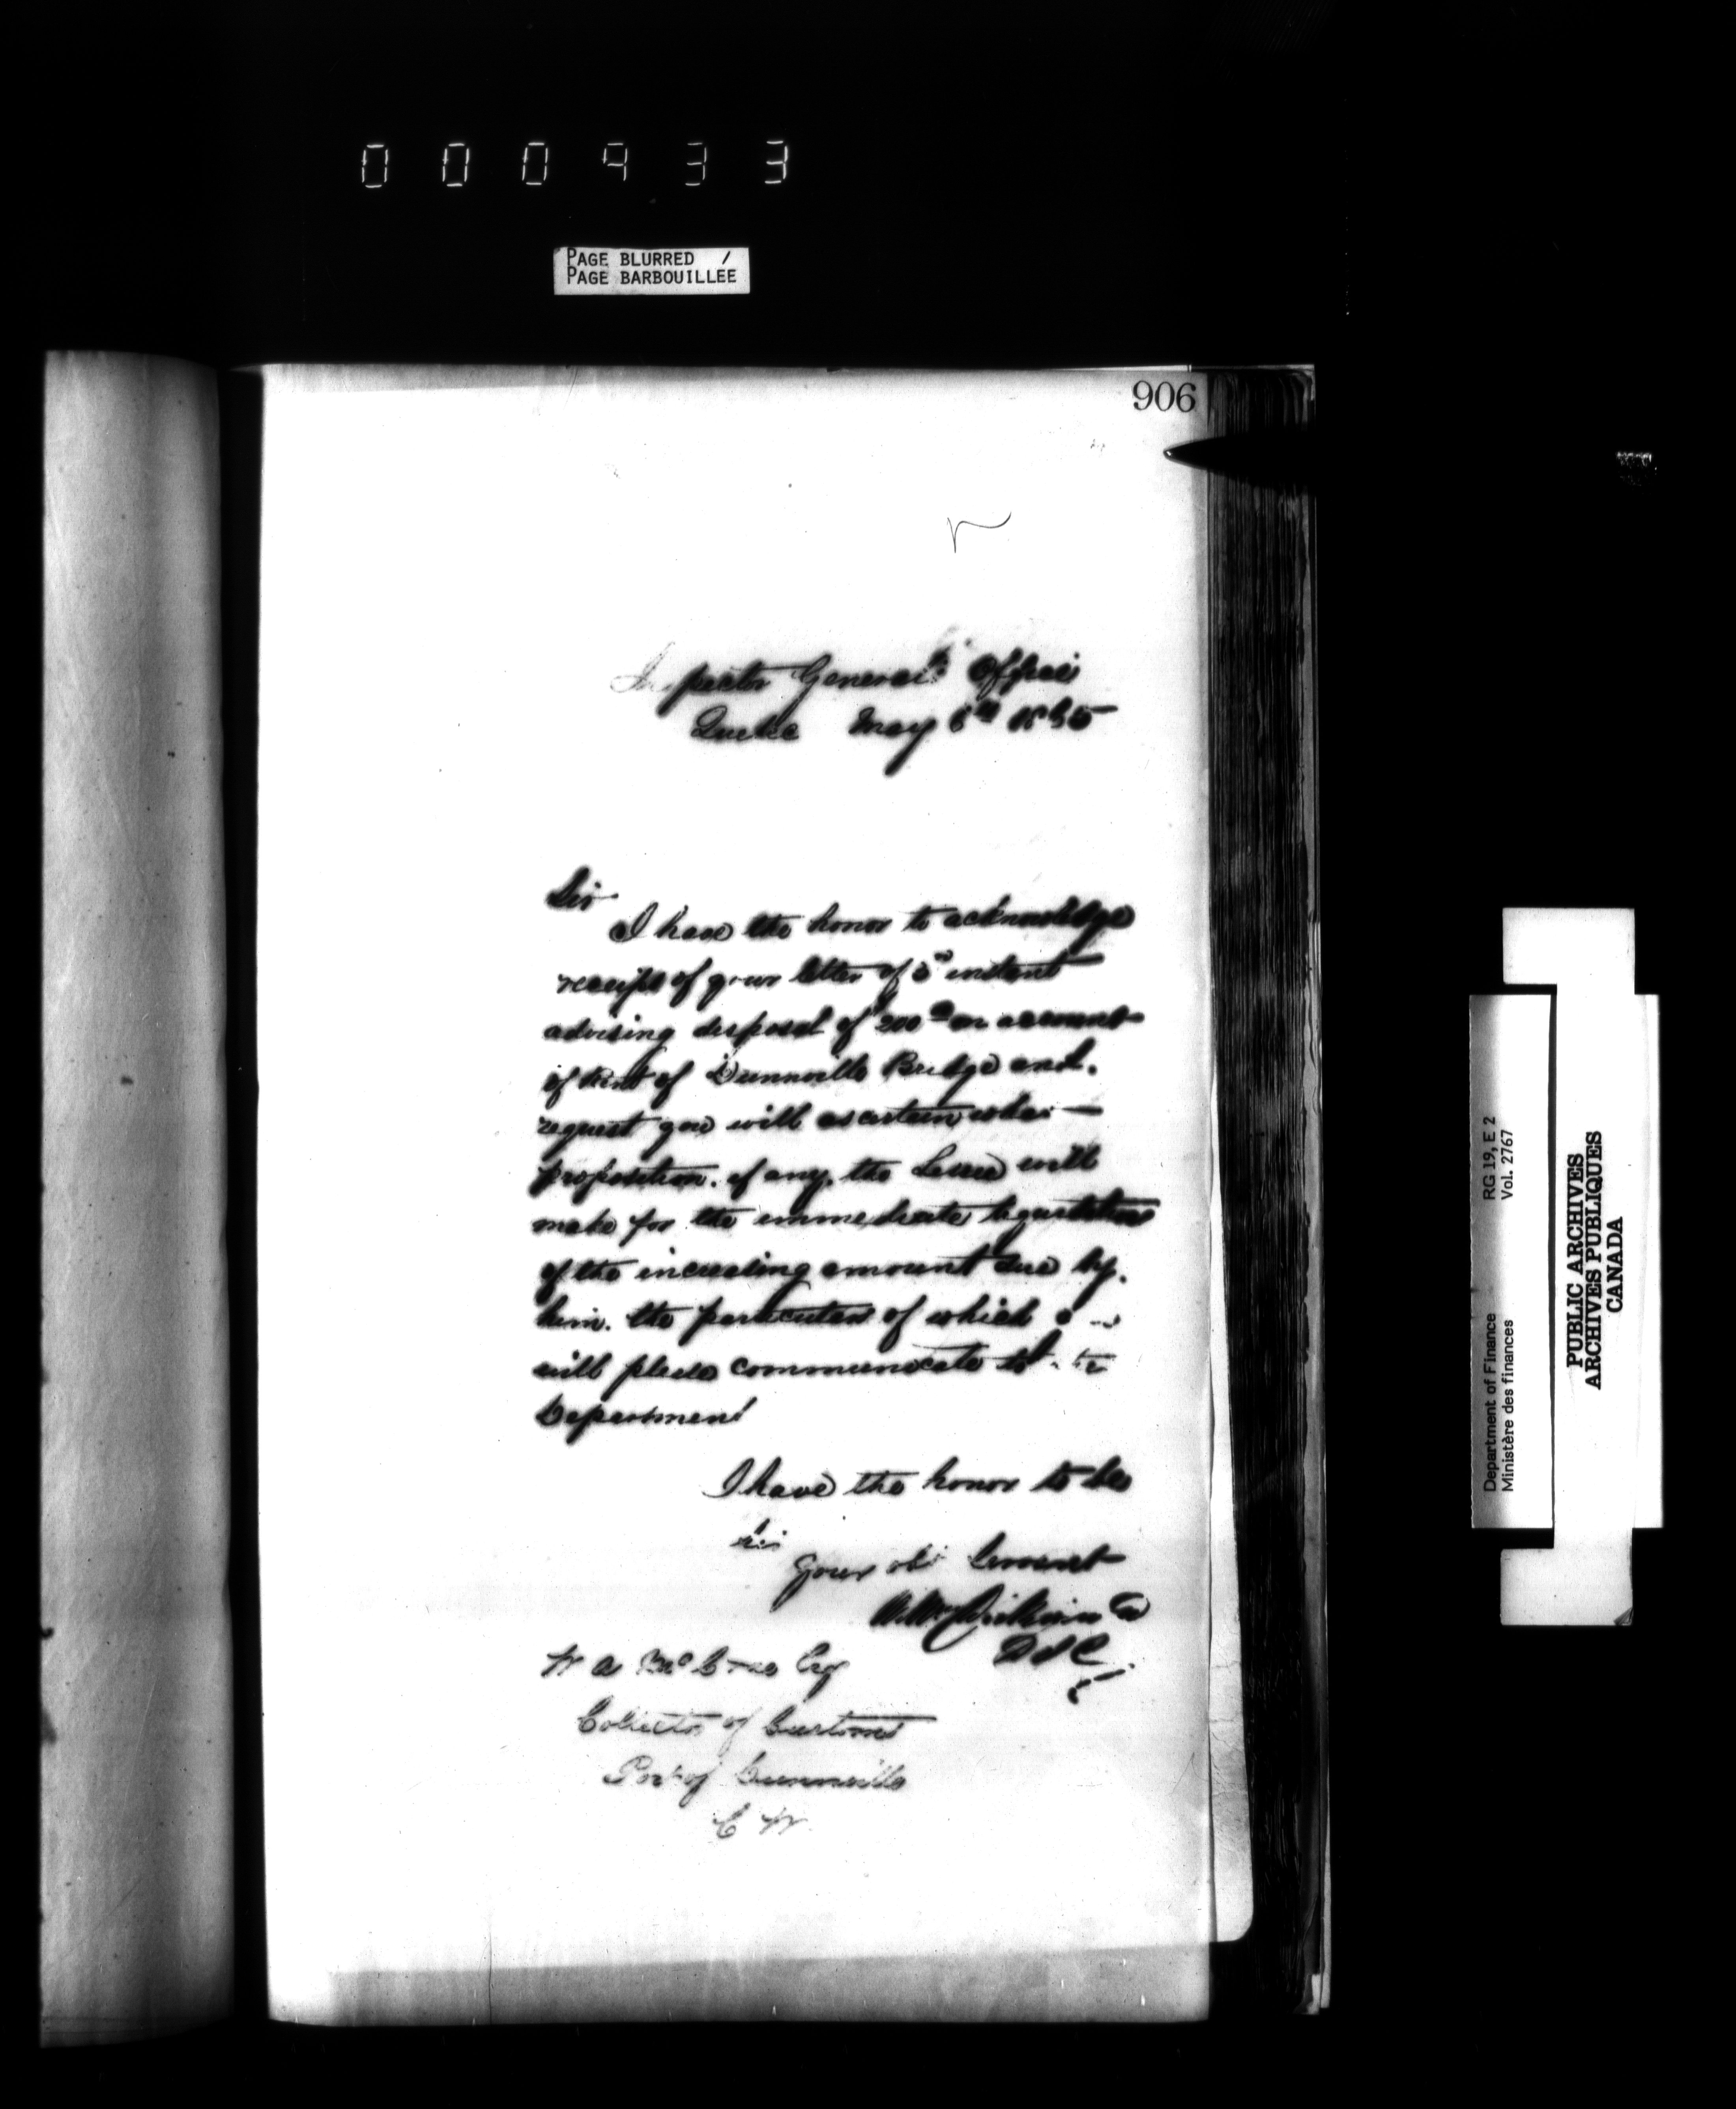 000433
PAGE BLURRED /
PAGE BARBOUILLEE
906
Inspector General's Office
Quebec May 8th 1865
Sir
I have the honor to acknowledge
receipt of your letter of 3rd instant
advising disposal of 200 on account
of Rent of Dunnville Bridge and
request you will ascertain what
proposition, if any, the Lessee will
make for the immediate liquidation
of the increasing amount due by
him. the particulars of which
will please communicate to
Department
I have the honor to be
Sir
Your obt Servant
D I G
W A McCrae Esq
Collector of Customs
Port of Dunnville
C W
Department of Finance RG 19, E 2
Ministère des finances Vol. 2767
PUBLIC ARCHIVES
ARCHIVES PUBLIQUES
CANADA